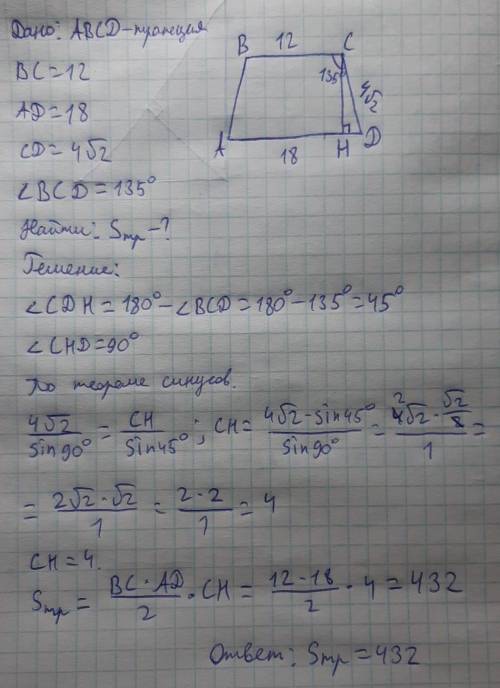 Дано: ABCD-трапеция
BC=12
AD=18
CD=4√2
∠BCD=135°
Найти: Sтр-?
Решение:
∠CDH=180°-∠BCD=180°-135°=45°
∠CHD=90°
По теореме синусов.
4√2/sin90° = CH/sin45°; CH= 4√2·sin45°/sin90° = 4√2·√2/2 / 1 =
= 2√2·√2/1 = 2·2/1 = 4
CH=4.
Sтр= BC·AD/2 · CH = 12·18/2 · 4 = 432
Ответ: Sтр=432
B 12 C
135°
4√2
A 18 H D